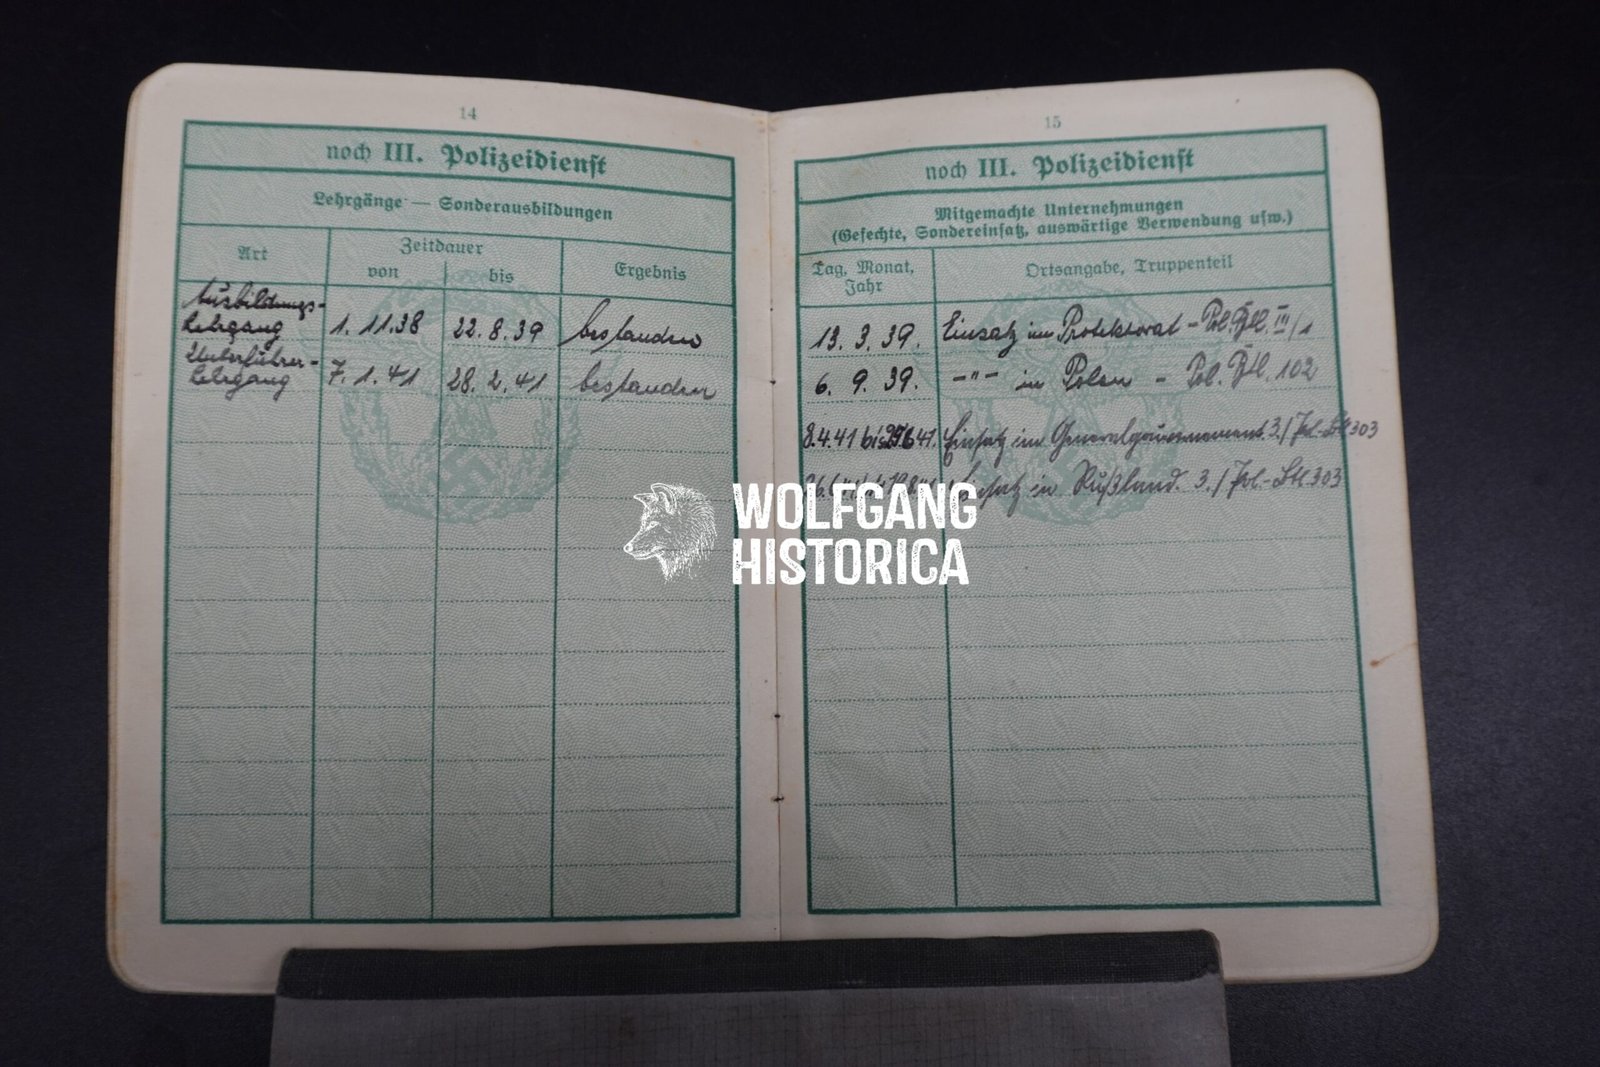 14
noch III. Polizeidienst
Lehrgänge — Sonderausbildungen
Art
Zeitdauer
von
bis
Ergebnis
Ausbildungs-
lehrgang 1. 11.38 22.8.39 bestanden
Unterführer-
lehrgang 7.1.41 28.2.41 bestanden
15
noch III. Polizeidienst
Mitgemachte Unternehmungen
(Gefechte, Sondereinsatz, auswärtige Verwendung usw.)
Tag, Monat,
Jahr
Ortsangabe, Truppenteil
13. 3. 39. Einsatz im Protektorat - Pol. Btl. III/1
6. 9. 39. —"— in Polen - Pol. Btl. 102
8.4.41 bis Einsatz im Generalgouvernement 3./Pol.-Btl 303
Einsatz in Rußland. 3./Pol.-Btl 303
WOLFGANG
HISTORICA